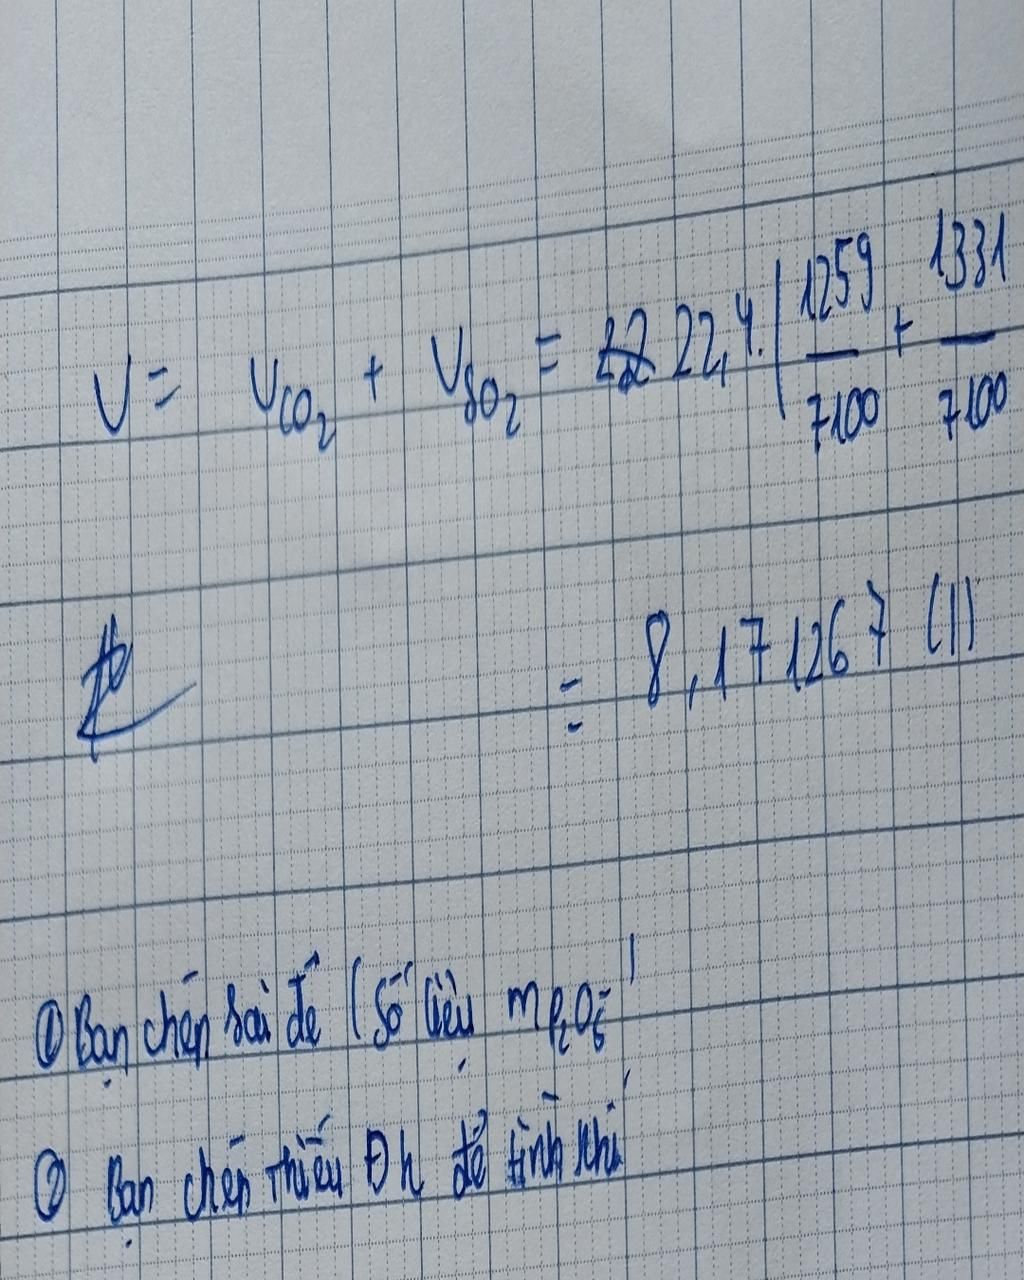 V = V_CO₂ + V_SO₂ = 22,4.(1259/7100 + 1331/7100
= 8,171267 (l)
① Bạn chép sai đề (số liệu m P₂O₅)
② Bạn chép thiếu Đk để tính khí